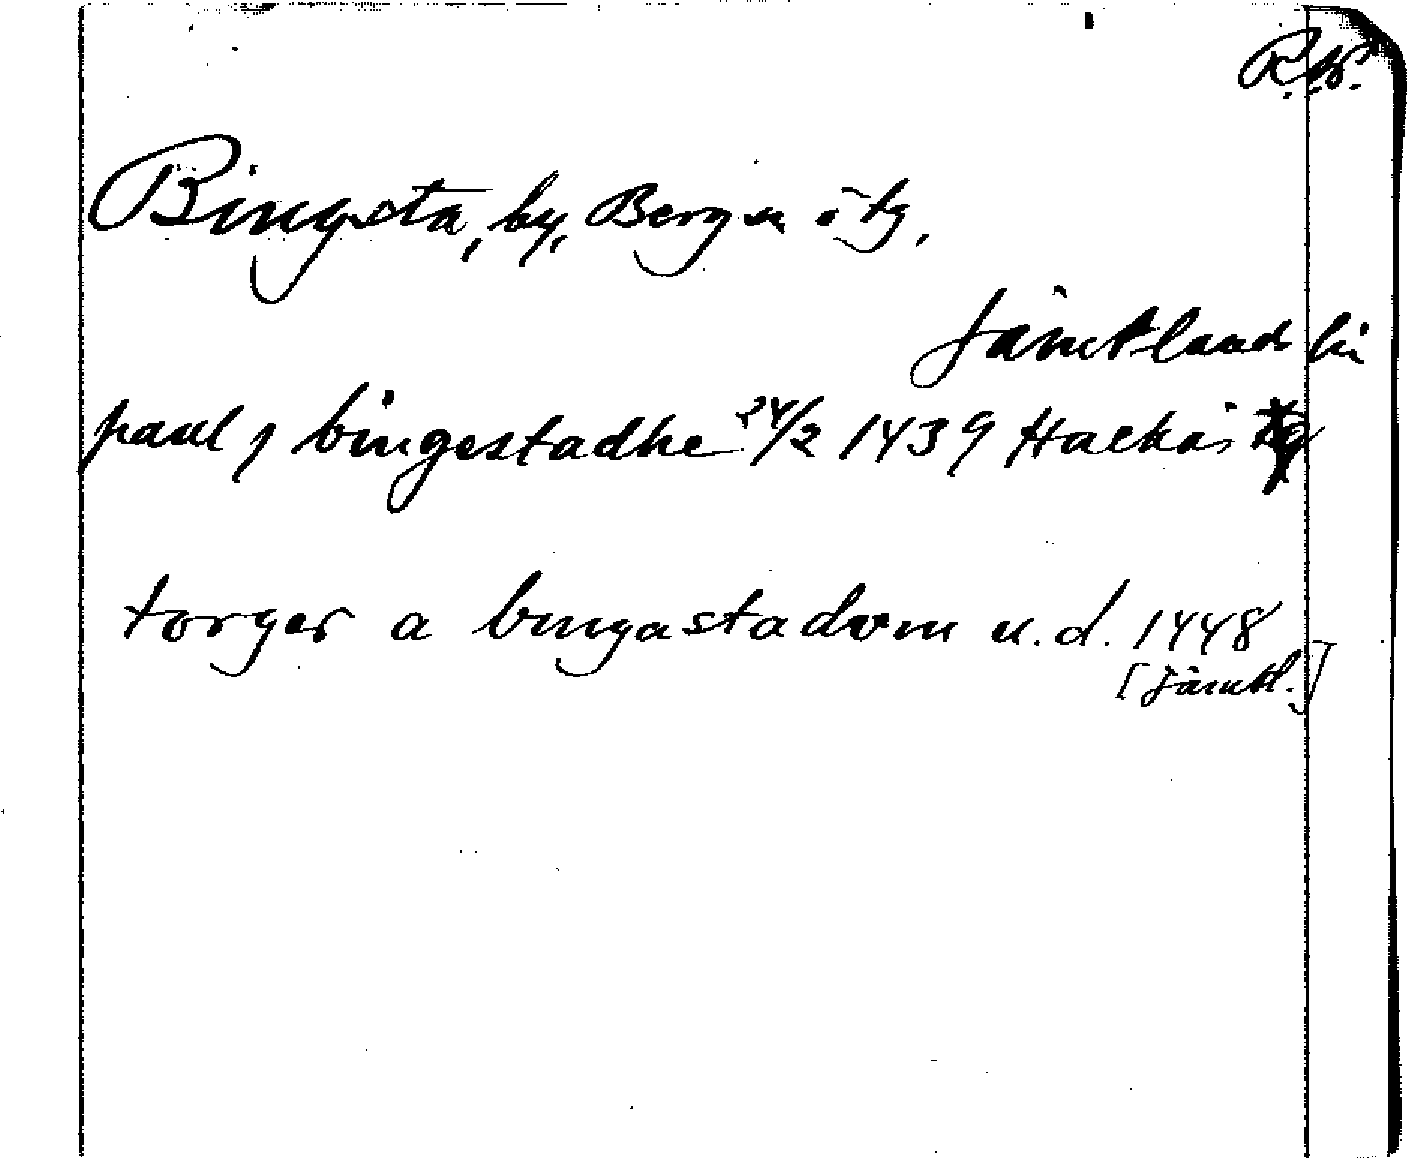 Bingsta, by, Bergs s:n o. tg,
Jämtland län
paul j bingestadhe 24/2 1439 Hackås tg
torger a bingastadom u.d. 1448
[Jämtl.]